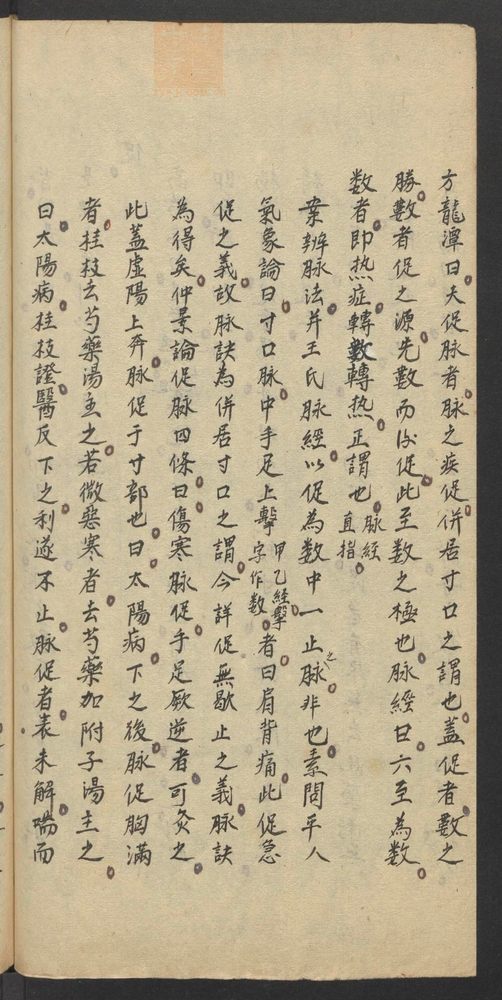 方龍潭曰夫促脉者脉之疾促併居寸口之謂也蓋促者數之
勝數者促之源先數而后促此至数之極也脉經曰六至為数
数者即热症轉數轉热正謂也脉經直指
案辨脉法并王氏脉經以促為数中一止之脉非也素問平人
氣象論曰寸口脉中手足上擊甲乙經擊字作数者曰肩背痛此促急
促之義故脉訣為併居寸口之謂今詳促無歇止之義脉訣
為得矣仲景論促脉四條曰傷寒脉促手足厥逆者可灸之
此蓋虚陽上奔脉促于寸部也曰太陽病下之後脉促胸滿
者桂枝去芍藥湯主之若微惡寒者去芍藥加附子湯主之
曰太陽病桂枝證醫反下之利遂不止脉促者表未解喘而